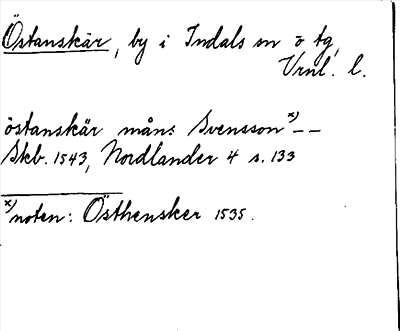 Östanskär, by i Indals sn ö tg,
Vrnl. l.
östanskär måns Svensson x) – –
Skb. 1543, Nordlander 4 s. 133
x) noten: Östhensker 1535.